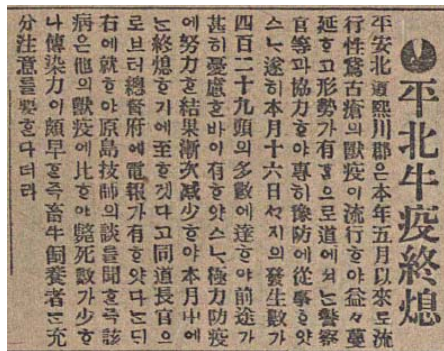 平北牛疫終熄
平安北道熙川郡은本年五月以來로流
行性鵞古瘡의獸疫이流行ᄒᆞ야益々蔓
延ᄒᆞ고形勢가有ᄒᆞᆷ으로道에셔ᄂᆞᆫ警察
官等과協力ᄒᆞ야專히豫防에從事ᄒᆞ얏
스ᄂᆞ遂히本月十六日ᄭᆞ지의發生數가
四百二十九頭의多數에達ᄒᆞ야前途가
甚히憂慮ᄒᆞᆯ바이有ᄒᆞ얏스ᄂᆞ極力防疫
에努力ᄒᆞᆫ結果漸次減少ᄒᆞ야本月中에
ᄂᆞᆫ終熄ᄒᆞ기에至ᄒᆞ겟다고同道長官으
로브터總督府에電報가有ᄒᆞ얏다ᄂᆞᆫᄃᆡ
右에就ᄒᆞ야原島技師의談을聞ᄒᆞᆫ즉該
病은他의獸疫에比ᄒᆞ야斃死數가少ᄒᆞ
나傳染力이頗早ᄒᆞᆫ즉畜牛飼養者ᄂᆞᆫ充
分注意를要ᄒᆞᆫ다더라